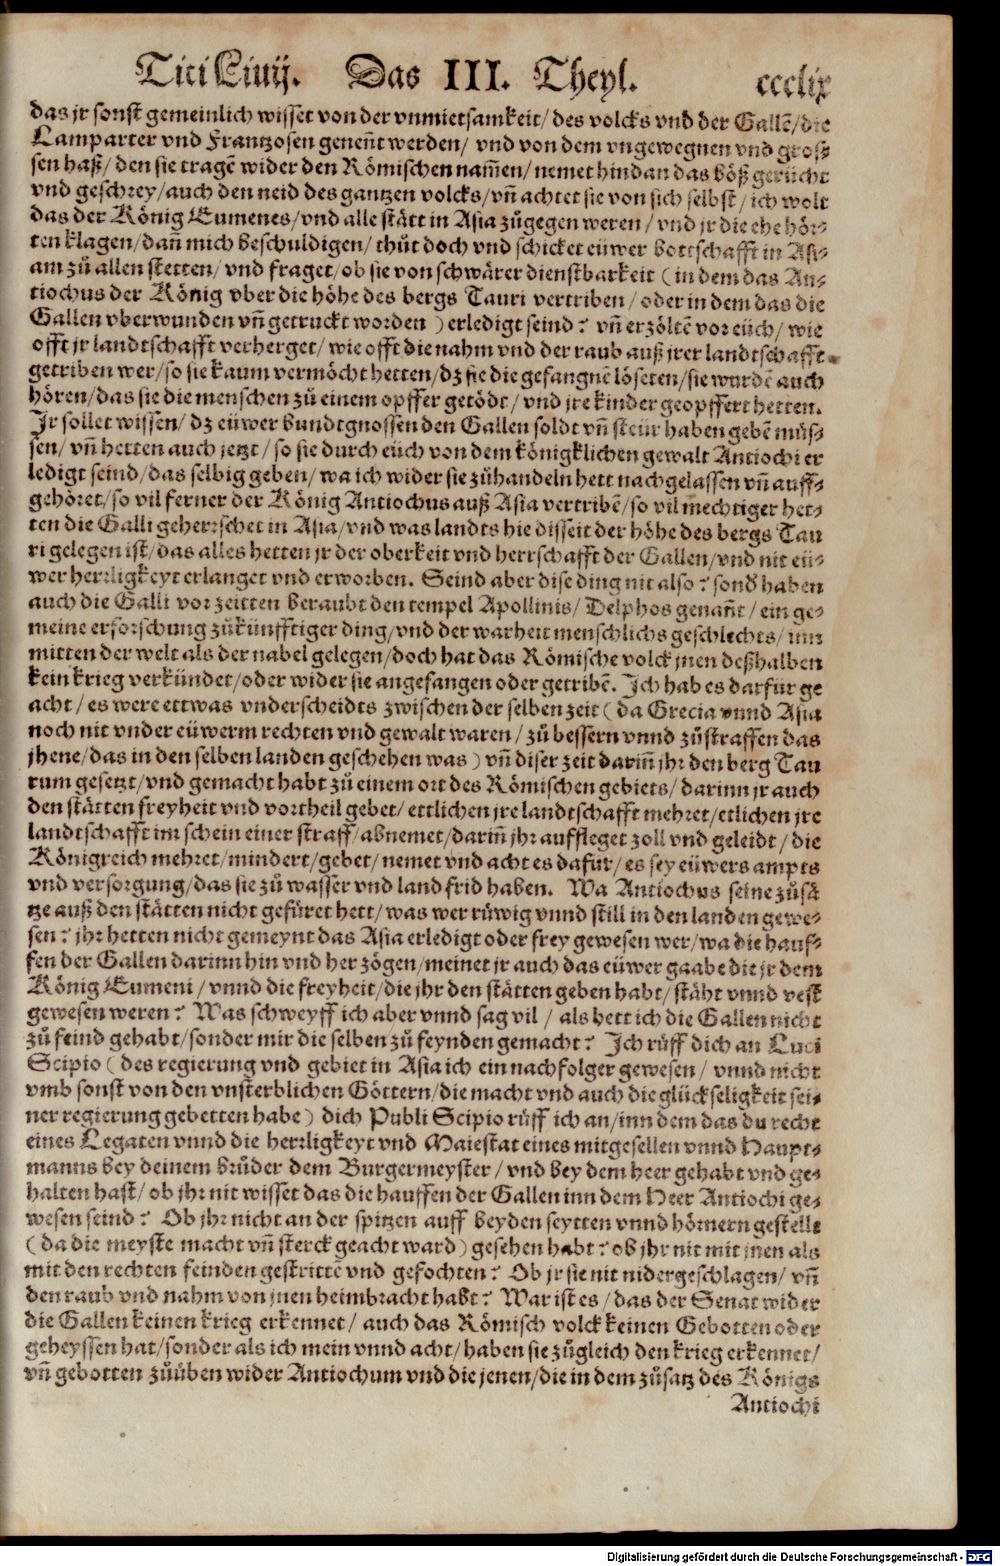 Titi Liuij. Das III. Theyl. ccclix
das jr sonst gemeinlich wisset von der vnmietsamkeit/ des volcks vnd der Gallē/die
Lamparter vnd Frantzosen genen̄t werden/ vnd von dem vngewegnen vnd gros⸗
sen haß/ den sie tragē wider den Römischen nam̄en/ nemet hindan das böß gerücht
vnd geschrey/ auch den neid des gantzen volcks/ vn̄ achtet sie von sich selbst/ ich wolt
das der König Eumenes/ vnd alle stätt in Asia zůgegen weren/ vnd jr die ehe hör⸗
ten klagen/ dan̄ mich beschuldigen/ thůt doch vnd schicket eüwer bottschafft in Asi⸗
am zů allen stetten/ vnd fraget/ ob sie von schwärer dienstbarkeit (in dem das An⸗
tiochus der König vber die höhe des bergs Tauri vertriben/ oder in dem das die
Gallen vberwunden vn̄ getruckt worden) erledigt seind? vn̄ erzöltē vor eüch/ wie
offt jr landtschafft verherget/ wie offt die nahm vnd der raub auß jrer landtschafft
getriben wer/ so sie kaum vermöcht hetten/ dz sie die gefangnē löseten/ sie wurdē auch
hören/ das sie die menschen zů einem opffer getödt/ vnd jre kinder geopffert hetten.
Jr sollet wissen/ dz eüwer bundtgnossen den Gallen soldt vn̄ steür haben gebē müs⸗
sen/ vn̄ hetten auch jetzt/ so sie durch eüch von dem königklichen gewalt Antiochi er
ledigt seind/ das selbig geben/ wa ich wider sie zůhandeln hett nachgelassen vn̄ auff⸗
gehöret/ so vil ferner der König Antiochus auß Asia vertribē/ so vil mechtiger het⸗
ten die Galli geherrschet in Asia/ vnd was landts hie disseit der höhe des bergs Tau
ri gelegen ist/ das alles hetten jr der oberkeit vnd herrschafft der Gallen/ vnd nit eü⸗
wer herrligkeyt erlanget vnd erworben. Seind aber dise ding nit also? sond' haben
auch die Galli vor zeitten beraubt den tempel Apollinis/ Delphos genan̄t/ ein ge⸗
meine erforschung zůkünfftiger ding/ vnd der warheit menschlichs geschlechts/ inn
mitten der welt als der nabel gelegen/ doch hat das Römische volck jnen deßhalben
kein krieg verkündet/ oder wider sie angefangen oder getribē. Ich hab es darfür ge
acht/ es were ettwas vnderscheidts zwischen der selben zeit (da Grecia vnnd Asia
noch nit vnder eüwerm rechten vnd gewalt waren/ zů bessern vnnd zůstraffen das
jhene/ das in den selben landen geschehen was) vn̄ diser zeit darin̄ jhr den berg Tau
rum gesetzt/ vnd gemacht habt zů einem ort des Römischen gebiets/ darinn jr auch
den stätten freyheit vnd vortheil gebet/ ettlichen jre landtschafft mehret/ etlichen jre
landtschafft im schein einer straff/ abnemet/ darin̄ jhr auffleget zoll vnd geleidt/ die
Königreich mehret/ mindert/ gebet/ nemet vnd acht es dafür/ es sey eüwers ampts
vnd versorgung/ das sie zů wasser vnd land frid haben. Wa Antiochus seine zůsä
tze auß den stätten nicht gefüret hett/ was wer rüwig vnnd still in den landen gewe⸗
sen? jhr hetten nicht gemeynt das Asia erledigt oder frey gewesen wer/ wa die hauf⸗
fen der Gallen darinn hin vnd her zögen/ meinet jr auch das eüwer gaabe die jr dem
König Eumeni/ vnnd die freyheit/ die jhr den stätten geben habt/ stäht vnnd vest
gewesen weren? Was schweyff ich aber vnnd sag vil/ als hett ich die Gallen nicht
zů feind gehabt/ sonder mir die selben zů feynden gemacht? Ich růff dich an Luci
Scipio (des regierung vnd gebiet in Asia ich ein nachfolger gewesen/ vnnd nicht
vmb sonst von den vnsterblichen Göttern/ die macht vnd auch die glückseligkeit sei⸗
ner regierung gebetten habe) dich Publi Scipio růff ich an/ inn dem das du recht
eines Legaten vnnd die herrligkeyt vnd Maiestat eines mitgesellen vnnd Haupt⸗
manns bey deinem brůder dem Burgermeyster/ vnd bey dem heer gehabt vnd ge⸗
halten hast/ ob jhr nit wisset das die hauffen der Gallen inn dem Heer Antiochi ge⸗
wesen seind? Ob jhr nicht an der spitzen auff beyden seytten vnnd hörnern gestellt
(da die meyste macht vn̄ sterck geacht ward) gesehen habt? ob jhr nit mit jnen als
mit den rechten feinden gestrittē vnd gefochten? Ob jr sie nit nidergeschlagen/ vn̄
den raub vnd nahm von jnen heimbracht habt? War ist es/ das der Senat wider
die Gallen keinen krieg erkennet/ auch das Römisch volck keinen Gebotten oder
geheyssen hat/ sonder als ich mein vnnd acht/ haben sie zůgleich den krieg erkennet/
vn̄ gebotten zůüben wider Antiochum vnd die jenen/ die in dem zůsatz des Königs
Antiochi
Digitalisierung gefördert durch die Deutsche Forschungsgemeinschaft - DFG